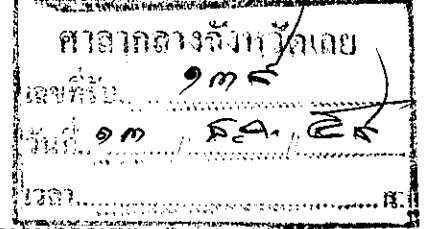 ศาลากลางจังหวัดเลย
เลขที่รับ ๑๓๙
วันที่ ๑๓ / ธ.ค. / ๕๙
เวลา น.